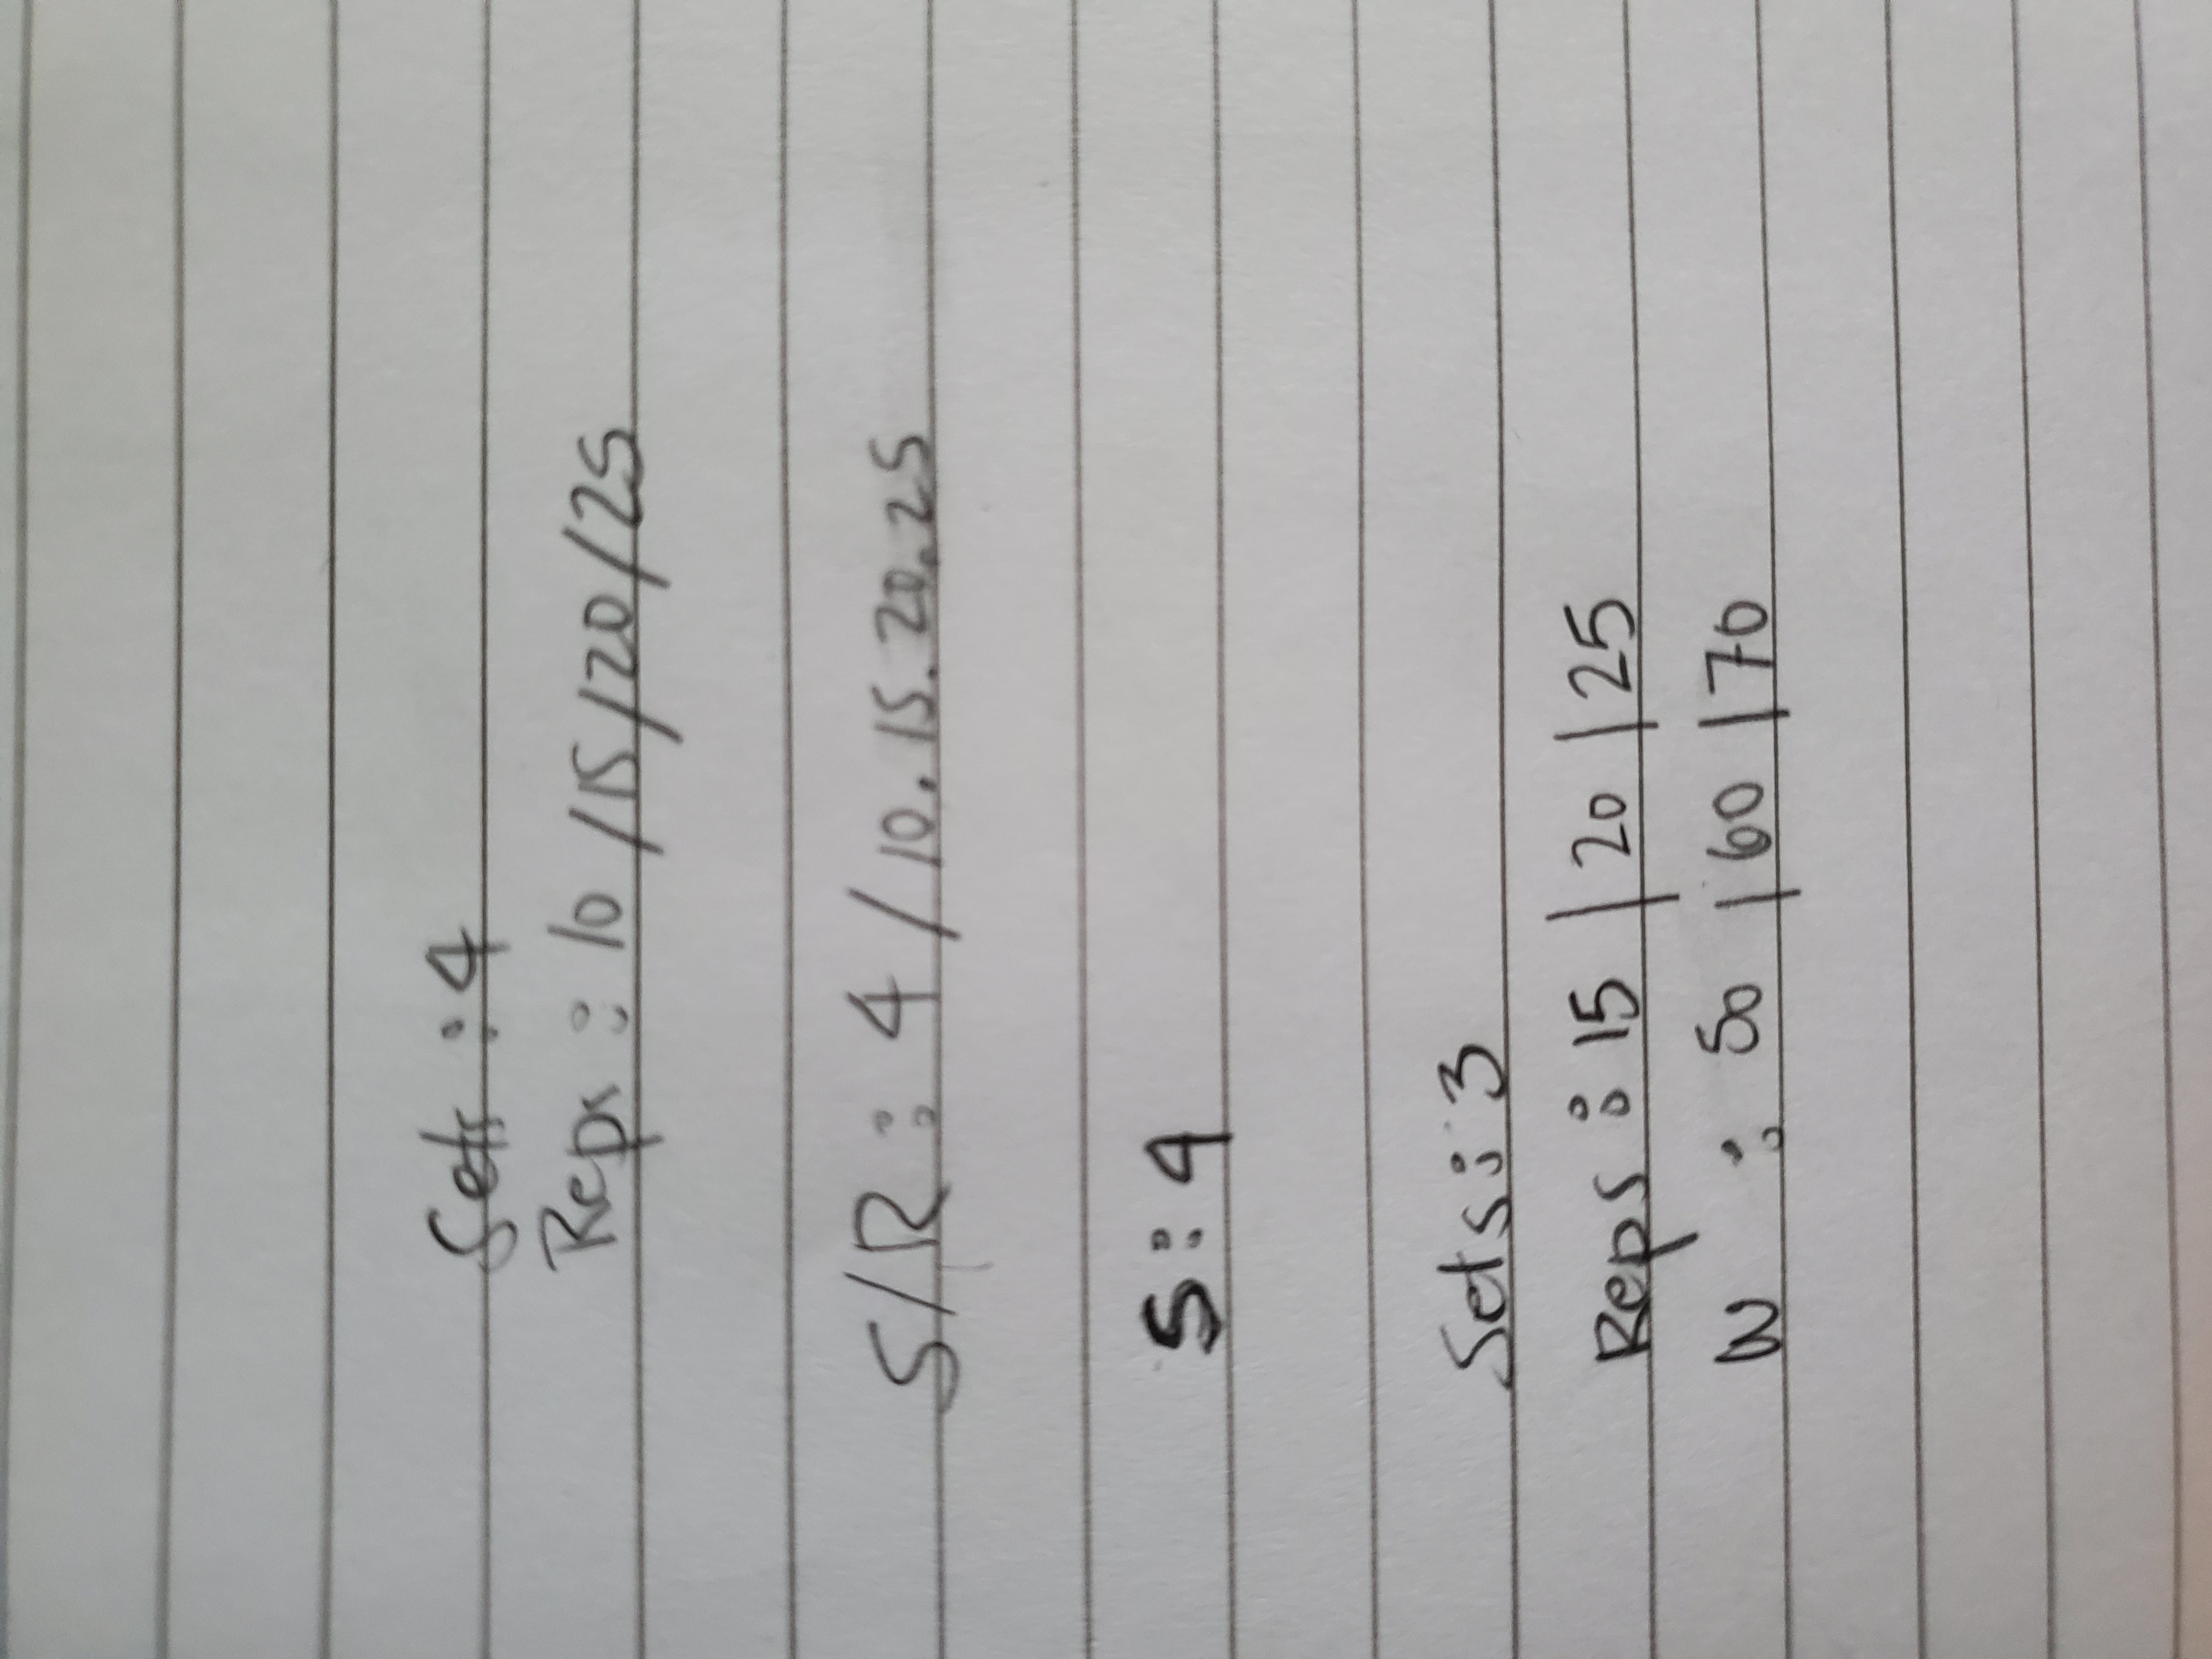 Sets : 4
Reps : 10 / 15 / 20 / 25
S/R : 4 / 10. 15. 20. 25
S : 4
Sets : 3
Reps : 15 | 20 | 25
W : 50 | 60 | 70